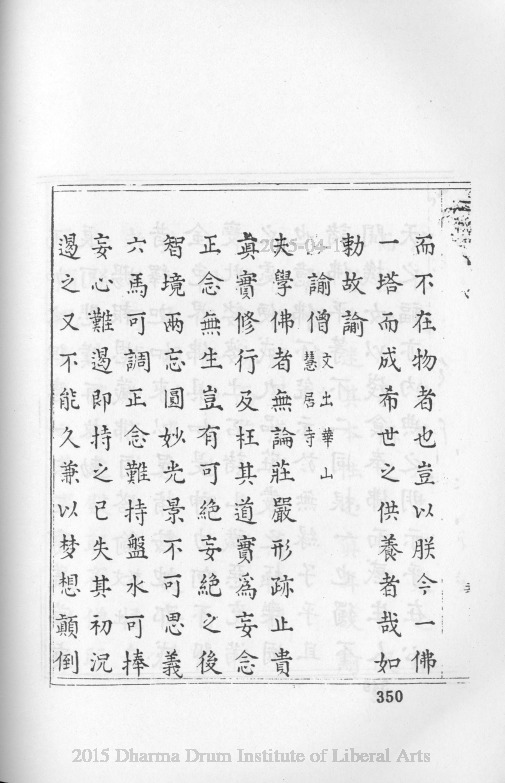 而不在物者也豈以朕今一佛
一塔而成希世之供養者哉如
勅故諭
諭僧 文出華山慧居寺
夫學佛者無論莊嚴形跡止貴
真實修行及枉其道實為妄念
正念無生豈有可絕妄絕之後
智境兩忘圓妙光景不可思義
六馬可調正念難持盤水可捧
妄心難遏即持之已失其初況
遏之又不能久兼以梦想顛倒
350
2015 Dharma Drum Institute of Liberal Arts